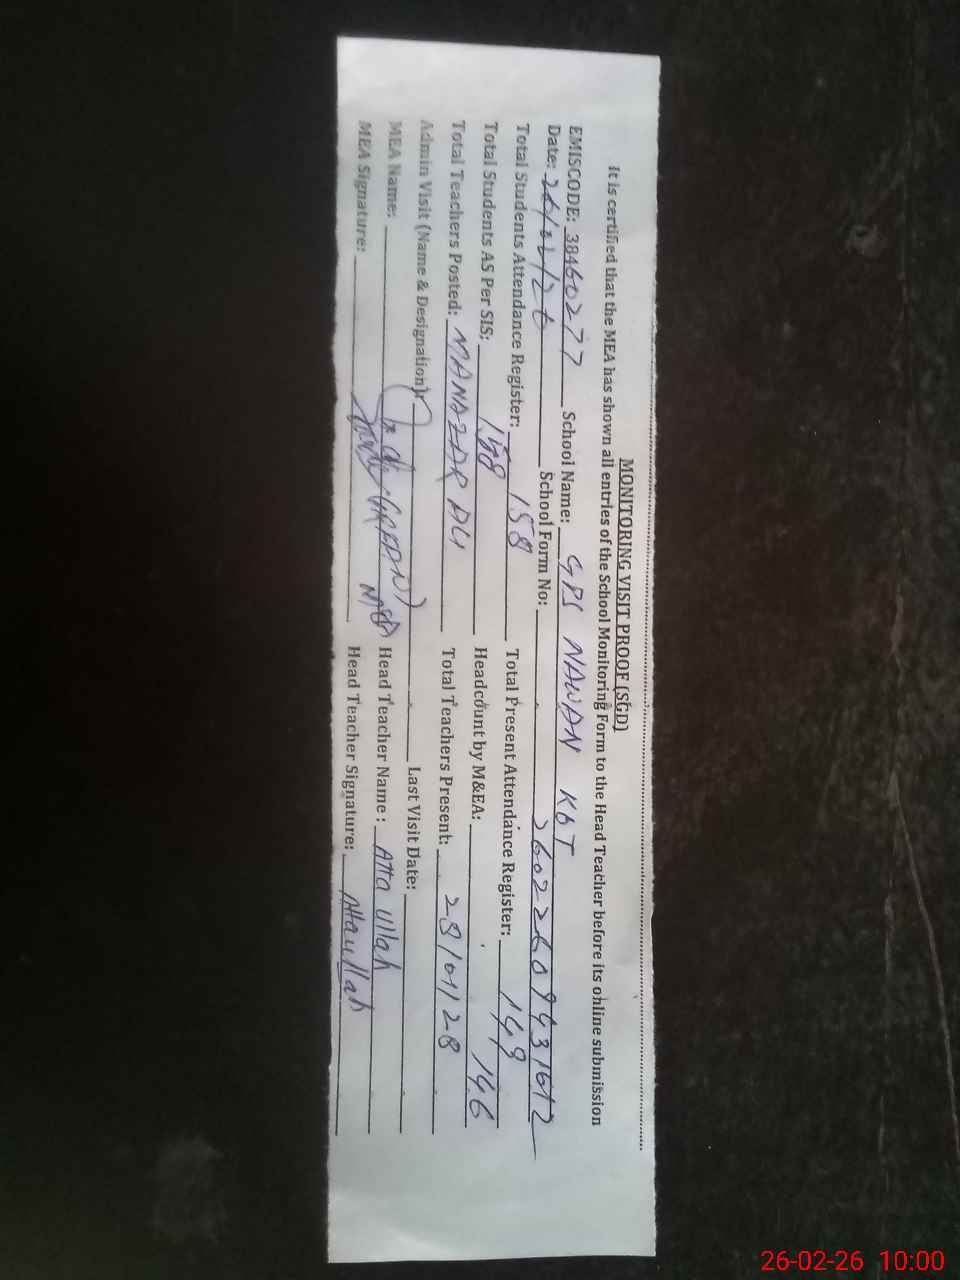 MONITORING VISIT PROOF (SGD)
It is certified that the MEA has shown all entries of the School Monitoring Form to the Head Teacher before its online submission
EMISCODE: 38460277 School Name: GPS NAWAN KOT
Date: 26/02/26 School Form No:
Total Students Attendance Register: 158 Total Present Attendance Register: 149
Total Students AS Per SIS: 158 Headcount by M&EA: 146
Total Teachers Posted: Total Teachers Present:
Admin Visit (Name & Designation): Last Visit Date:
MEA Name: Head Teacher Name: Atta Ullah
MEA Signature: Head Teacher Signature: Attaullah
26-02-26 10:00